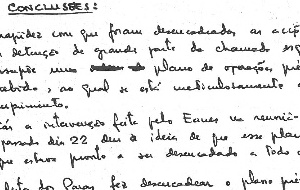 CONCLUSÕES:
rapidez com que foram desencadeadas as acçõ
detenção de grande parte do chamado
supõe um plano de operações
cebido, ao qual se está meticulosamente a
cumprimento.
a intervenção feita pelo Eanes na reunião
passado dia 22 deu a ideia de que esse plan
que estava pronto a ser desencadeado a todo o
dos Paras fez desencadear o plano